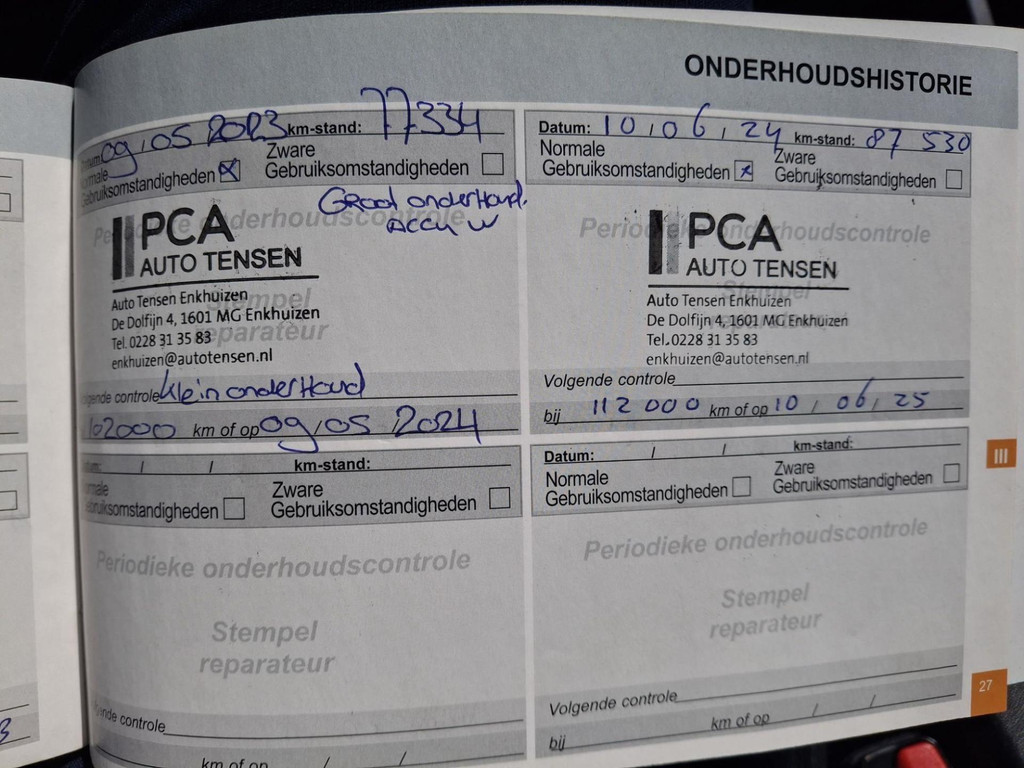 ONDERHOUDSHISTORIE
09/05 2023 km-stand: 77334
Gebruiksomstandigheden x
Zware
Gebruiksomstandigheden
Groot onderhoud.
Accu
Periodieke onderhoudscontrole
PCA
AUTO TENSEN
Stempel
reparateur
Auto Tensen Enkhuizen
De Dolfijn 4, 1601 MG Enkhuizen
Tel. 0228 31 35 83
enkhuizen@autotensen.nl
controle Klein onderhoud
102000 km of op 09/05 2024
Datum: 10/06/24 km-stand: 87 530
Normale
Gebruiksomstandigheden x
Zware
Gebruiksomstandigheden
Periodieke onderhoudscontrole
PCA
AUTO TENSEN
Stempel
reparateur
Auto Tensen Enkhuizen
De Dolfijn 4, 1601 MG Enkhuizen
Tel. 0228 31 35 83
enkhuizen@autotensen.nl
Volgende controle
bij 112 000 km of op 10/06/25
/ / km-stand:
Gebruiksomstandigheden
Zware
Gebruiksomstandigheden
Periodieke onderhoudscontrole
Stempel
reparateur
controle
km of op / /
Datum: / / km-stand:
Normale
Gebruiksomstandigheden
Zware
Gebruiksomstandigheden
Periodieke onderhoudscontrole
Stempel
reparateur
Volgende controle
bij km of op / /
III
27